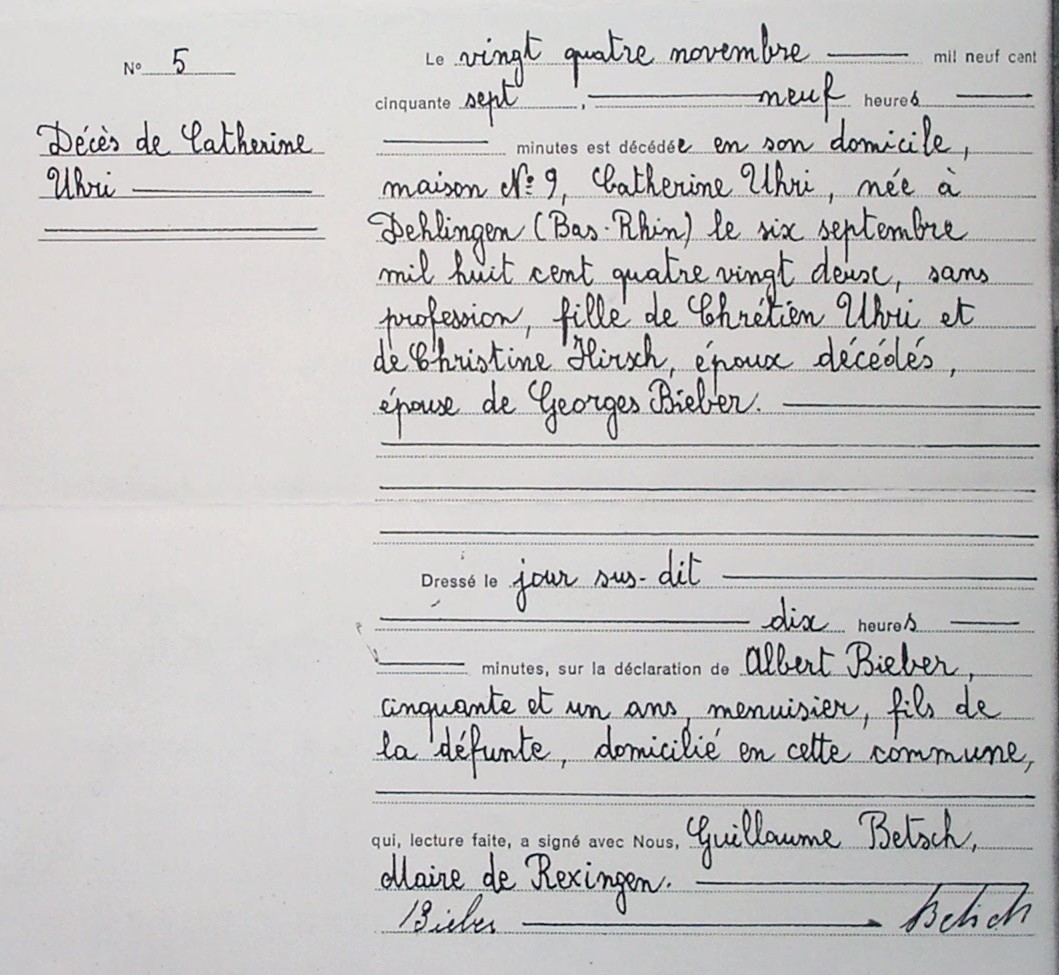 N° 5
Décès de Catherine
Uhri
Le vingt quatre novembre mil neuf cent
cinquante sept, neuf heures
minutes est décédée en son domicile,
maison N° 9, Catherine Uhri, née à
Dehlingen (Bas-Rhin) le six septembre
mil huit cent quatre vingt deux, sans
profession, fille de Chrétien Uhri et
de Christine Hirsch, époux décédés,
épouse de Georges Bieber.
Dressé le jour sus-dit
dix heures
minutes, sur la déclaration de Albert Bieber,
cinquante et un ans, menuisier, fils de
la défunte, domicilié en cette commune,
qui, lecture faite, a signé avec Nous, Guillaume Betsch,
Maire de Rexingen.
Bieber Betsch